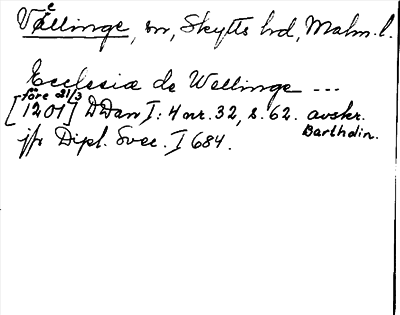 Vellinge, sn, Skytts hd, Malm. l.
Ecclesia de Wellinge ...
före 21/3
[1201] DDan I: 4 nr. 32, s. 62. avskr.
Bartholin.
jfr Dipl. Svec. I 684.